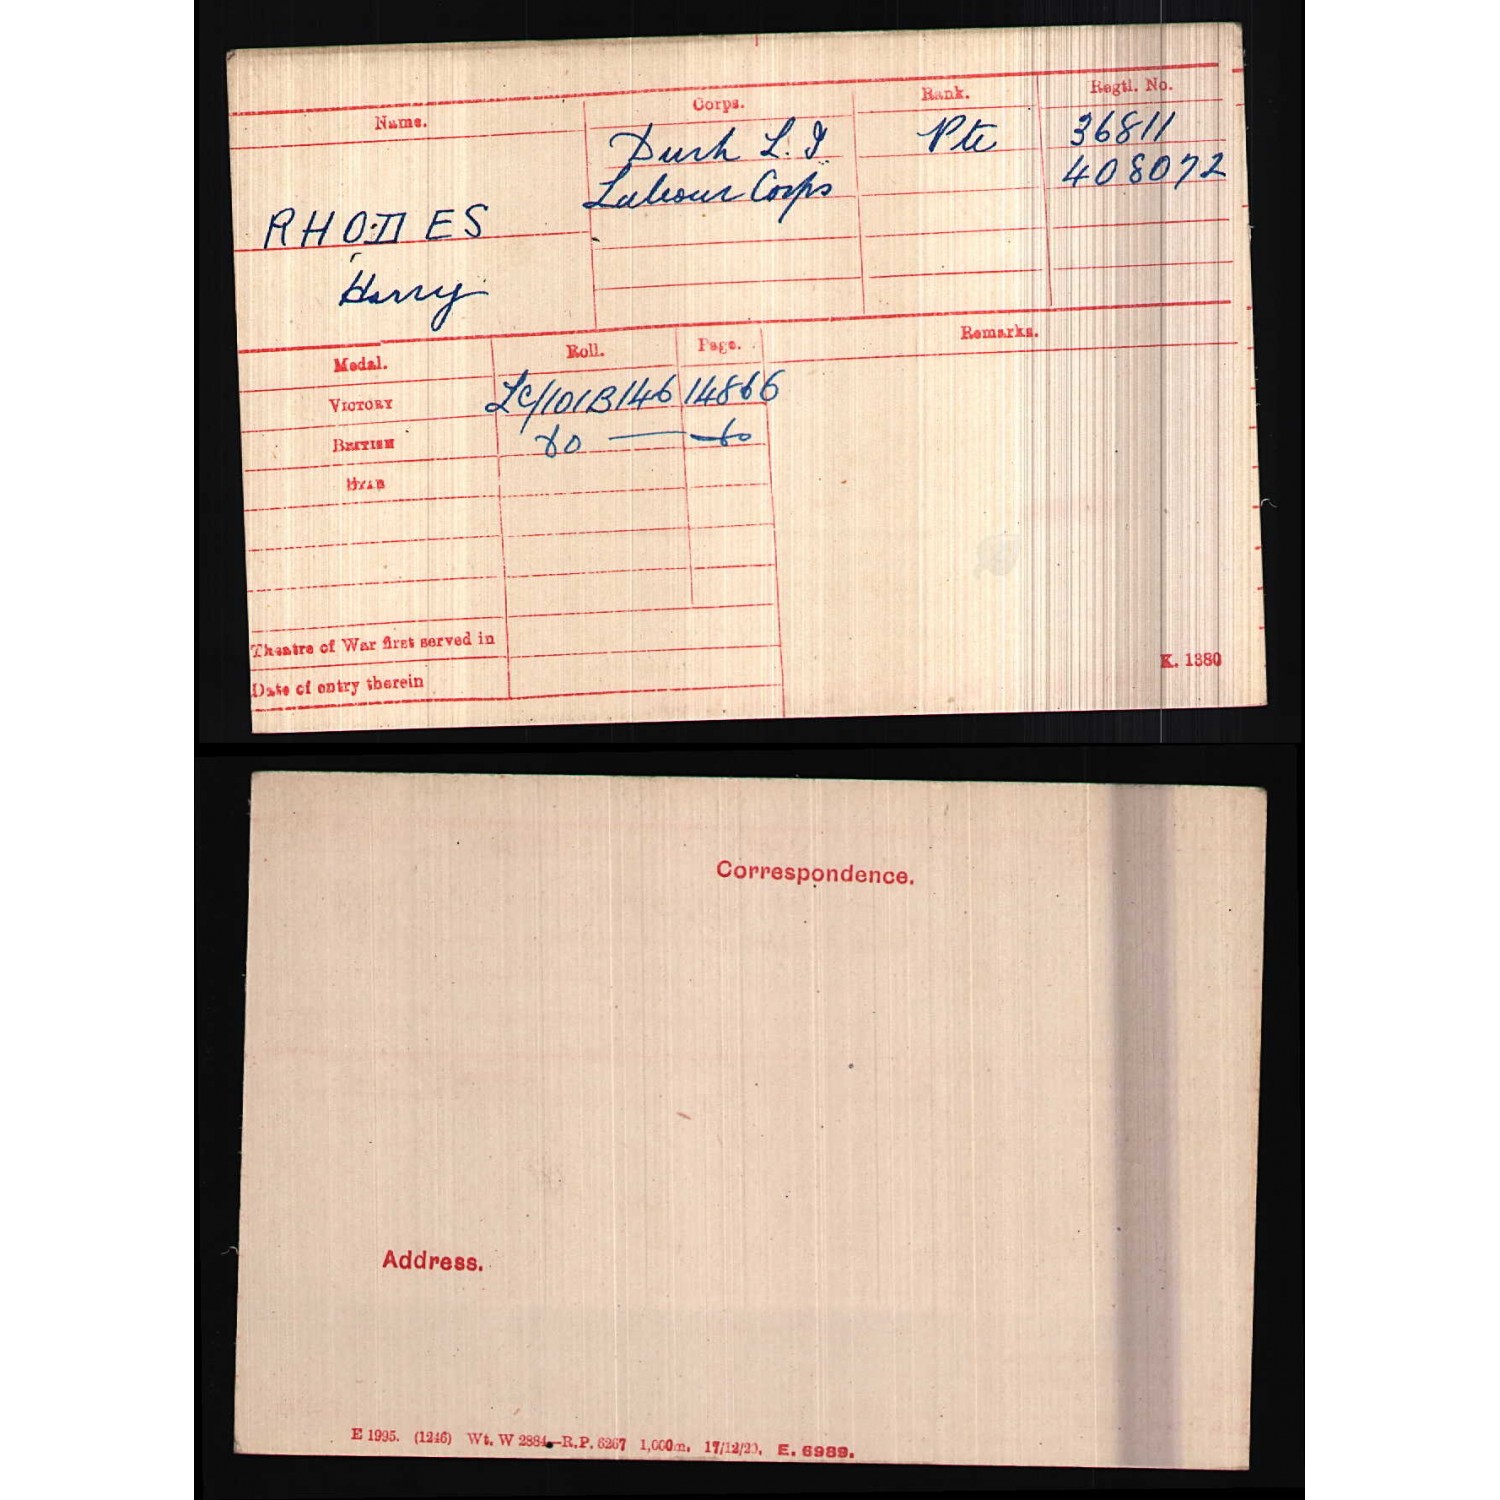 Name. Corps. Rank. Regtl. No.
Durh L.I Pte 36811
Labour Corps 408072
RHODES
Harry
Medal. Roll. Page. Remarks.
VICTORY LC/101B146 14866
BRITISH do — do
STAR
Theatre of War first served in
Date of entry therein
K. 1380
Correspondence.
Address.
E 1995. (1246) Wt. W 2884—R.P. 6267 1,000m. 17/12/20. E. 6989.